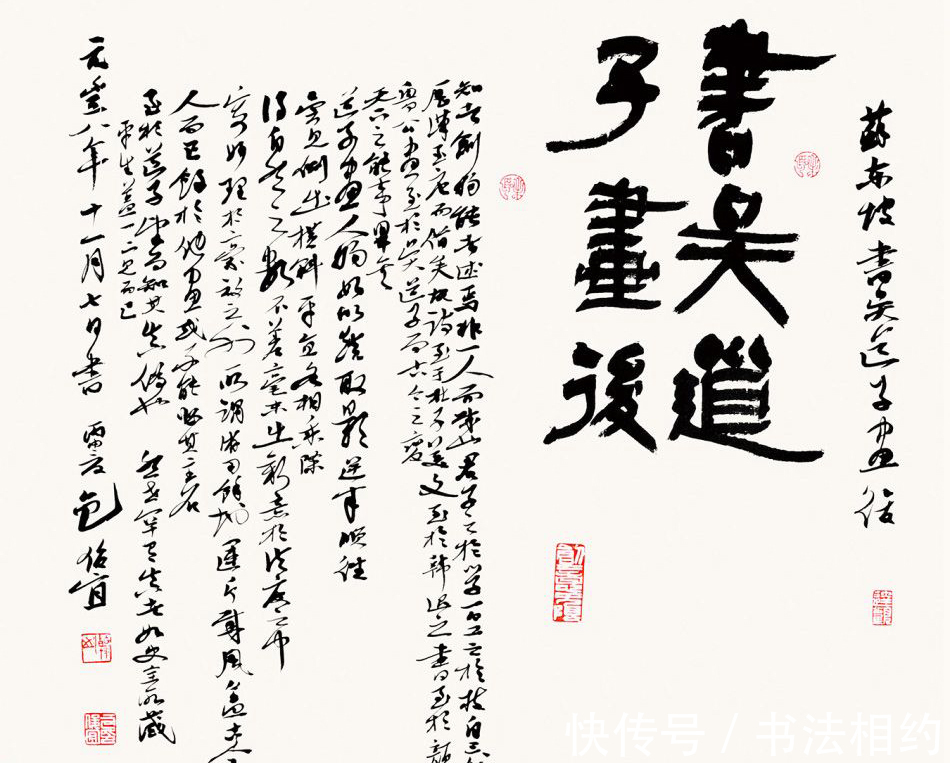 蘇東坡書吳道子畫後
書吳道
子畫後
知者創物能者述焉非一人而成也君子之於學百工之於技自三代
歷漢至唐而備矣故詩至于杜子美文至於韓退之書至於顏
魯公畫至於吳道子而古今之變
天下之能事畢矣
道子畫人物如以燈取影逆來順往
旁見側出橫斜平直各相乘除
得自然之數不差毫末出新意於法度之中
寄妙理於豪放之外所謂游刃餘地運斤成風蓋古今
人而已餘於他畫或不能必其主名
至於道子望而知其真偽也 然世罕有真者如史全叔所藏
平生蓋一二見而已
元豐八年十一月七日書 包俊宜
快传号 / 书法相约